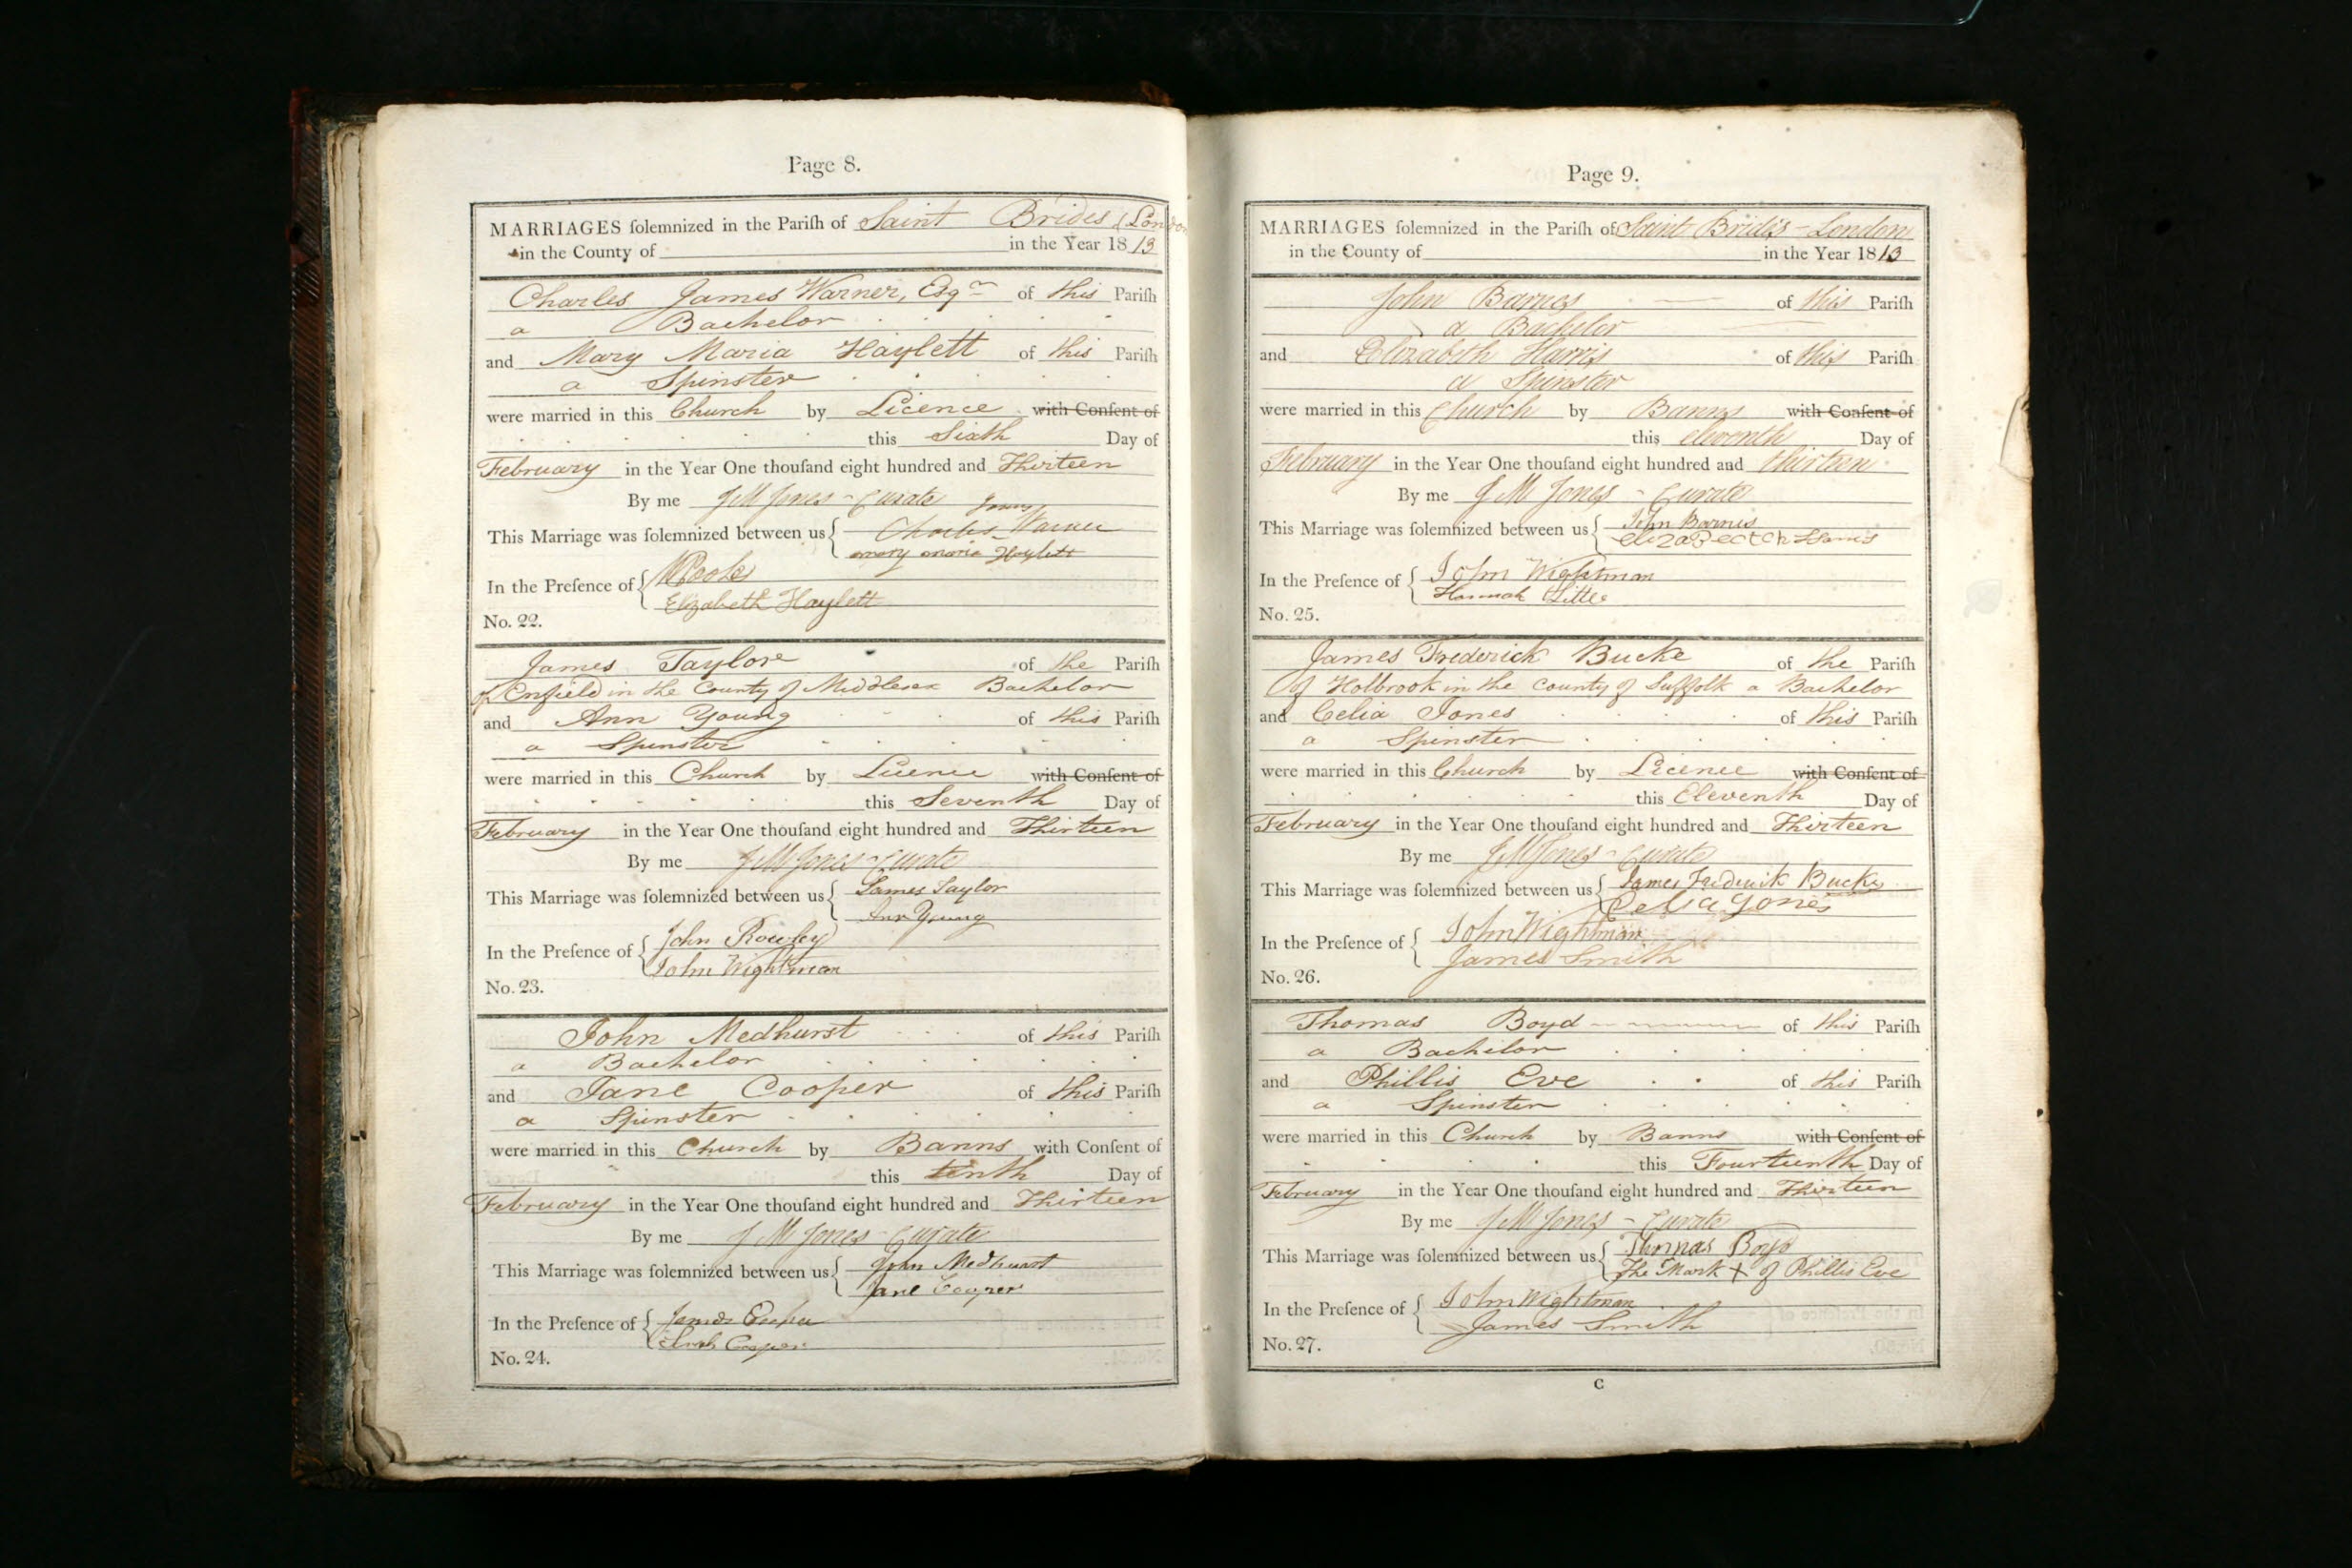 Page 8.
MARRIAGES ſolemnized in the Pariſh of Saint Brides London
in the County of in the Year 1813
Charles James Warner, Esqr of this Pariſh
a Bachelor
and Mary Maria Haylett of this Pariſh
a Spinster
were married in this Church by Licence with Conſent of
this Sixth Day of
February in the Year One thouſand eight hundred and Thirteen
By me J M Jones - Curate
James
This Marriage was ſolemnized between us { Charles Warner
mary maria Haylett
In the Preſence of {
Elizabeth Haylett
No. 22.
James Taylor of the Pariſh
of Enfield in the County of Middlesex Bachelor
and Ann Young of this Pariſh
a Spinster
were married in this Church by Licence with Conſent of
this Seventh Day of
February in the Year One thouſand eight hundred and Thirteen
By me J M Jones - Curate
This Marriage was ſolemnized between us { James Taylor
Ann Young
In the Preſence of { John Rowley
John Wightman
No. 23.
John Medhurst of this Pariſh
a Bachelor
and Jane Cooper of this Pariſh
a Spinster
were married in this Church by Banns with Conſent of
this tenth Day of
February in the Year One thouſand eight hundred and Thirteen
By me J M Jones - Curate
This Marriage was ſolemnized between us { John Medhurst
Jane Cooper
In the Preſence of { James
Cooper
No. 24.
Page 9.
MARRIAGES ſolemnized in the Pariſh of Saint Brides - London
in the County of in the Year 1813
John Barnes of this Pariſh
a Bachelor
and Elizabeth Harris of this Pariſh
a Spinster
were married in this Church by Banns with Conſent of
this eleventh Day of
February in the Year One thouſand eight hundred and thirteen
By me J M Jones - Curate
This Marriage was ſolemnized between us { John Barnes
elizaBectch Harris
In the Preſence of { John Wightman
Hannah Little
No. 25.
James Frederick Bucke of the Pariſh
of Holbrook in the County of Suffolk a Bachelor
and Celia Jones of this Pariſh
a Spinster
were married in this Church by Licence with Conſent of
this Eleventh Day of
February in the Year One thouſand eight hundred and Thirteen
By me J M Jones - Curate
This Marriage was ſolemnized between us { James Frederick Bucke
Celia Jones
In the Preſence of { John Wightman
James Smith
No. 26.
Thomas Boyd of this Pariſh
a Bachelor
and Phillis Eve of this Pariſh
a Spinster
were married in this Church by Banns with Conſent of
this Fourteenth Day of
February in the Year One thouſand eight hundred and Thirteen
By me J M Jones - Curate
This Marriage was ſolemnized between us { Thomas Boyd
The Mark X of Phillis Eve
In the Preſence of { John Wightman
James Smith
No. 27.
C